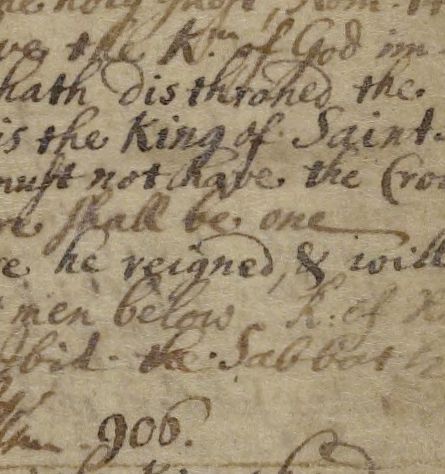 the holy Ghost, Rom. 14
ve the K.m of God im
hath disthroned the
is the King of Saint
must not have the Cro
re shall be one
re he reigned, & will
men below K: of
the Sabbat
906.